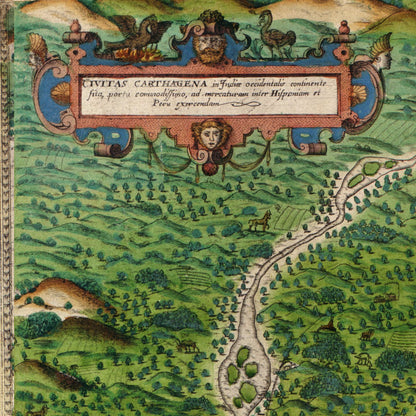 CIVITAS CARTHAGENA in Indiæ occidentalis continente
sita, portu commodissimo, ad mercaturam inter Hispaniam et
Peru exercendam